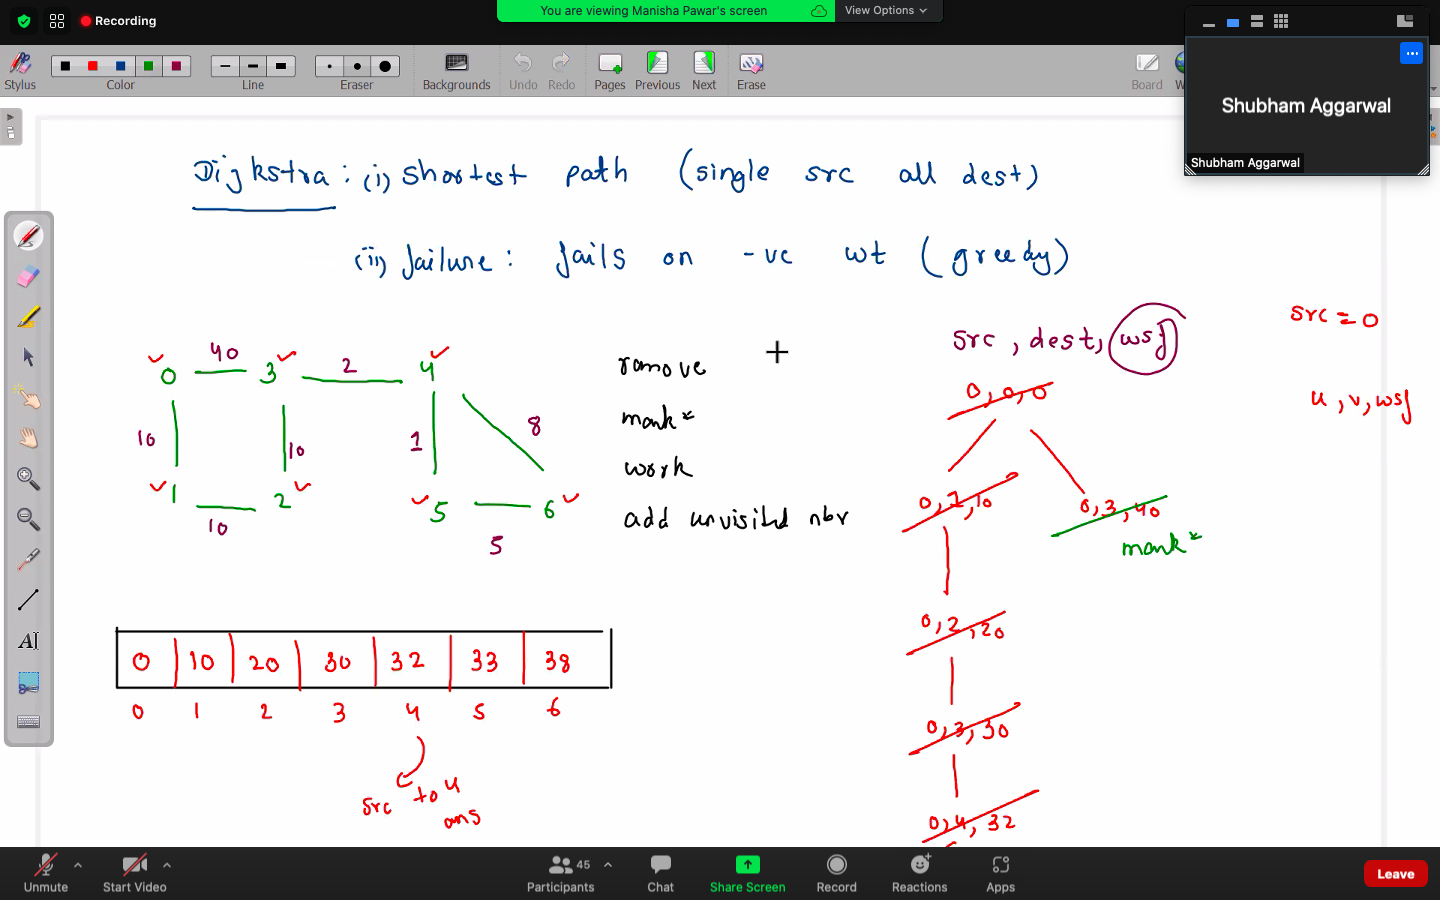 Recording
You are viewing Manisha Pawar's screen
View Options
Stylus
Color
Line
Eraser
Backgrounds
Undo
Redo
Pages
Previous
Next
Erase
Board
Shubham Aggarwal
Shubham Aggarwal
Dijkstra : (i) shortest path (single src all dest)
(ii) failure : fails on -ve wt (greedy)
src = 0
src , dest, wsf
u, v, wsf
0 40 3 2 4
10 10 1 8
1 10 2
5 5 6
remove
mark*
work
add unvisited nbr
0, 0, 0
0, 1, 10
0, 3, 40
mark*
0, 2, 20
0, 3, 30
0, 4, 32
0 10 20 30 32 33 38
0 1 2 3 4 5 6
src to 4
ans
AI
Unmute
Start Video
45
Participants
Chat
Share Screen
Record
Reactions
Apps
Leave